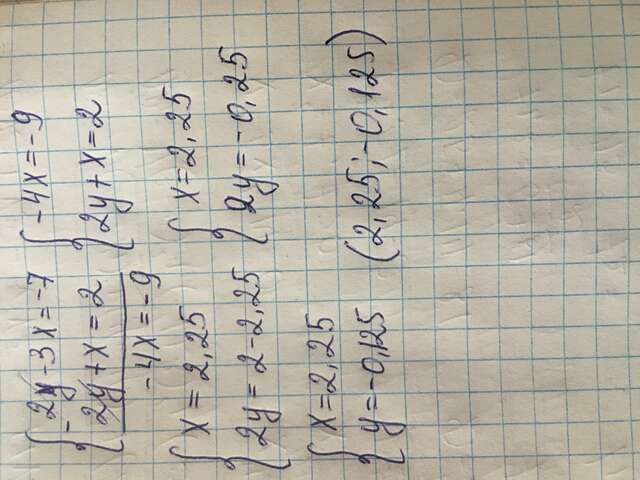 { 2y - 3x = -7
- { 2y + x = 2
-4x = -9
{ -4x = -9
{ 2y + x = 2
{ x = 2,25
{ 2y = 2 - 2,25
{ x = 2,25
{ 2y = -0,25
{ x = 2,25
{ y = -0,125
(2,25; -0,125)